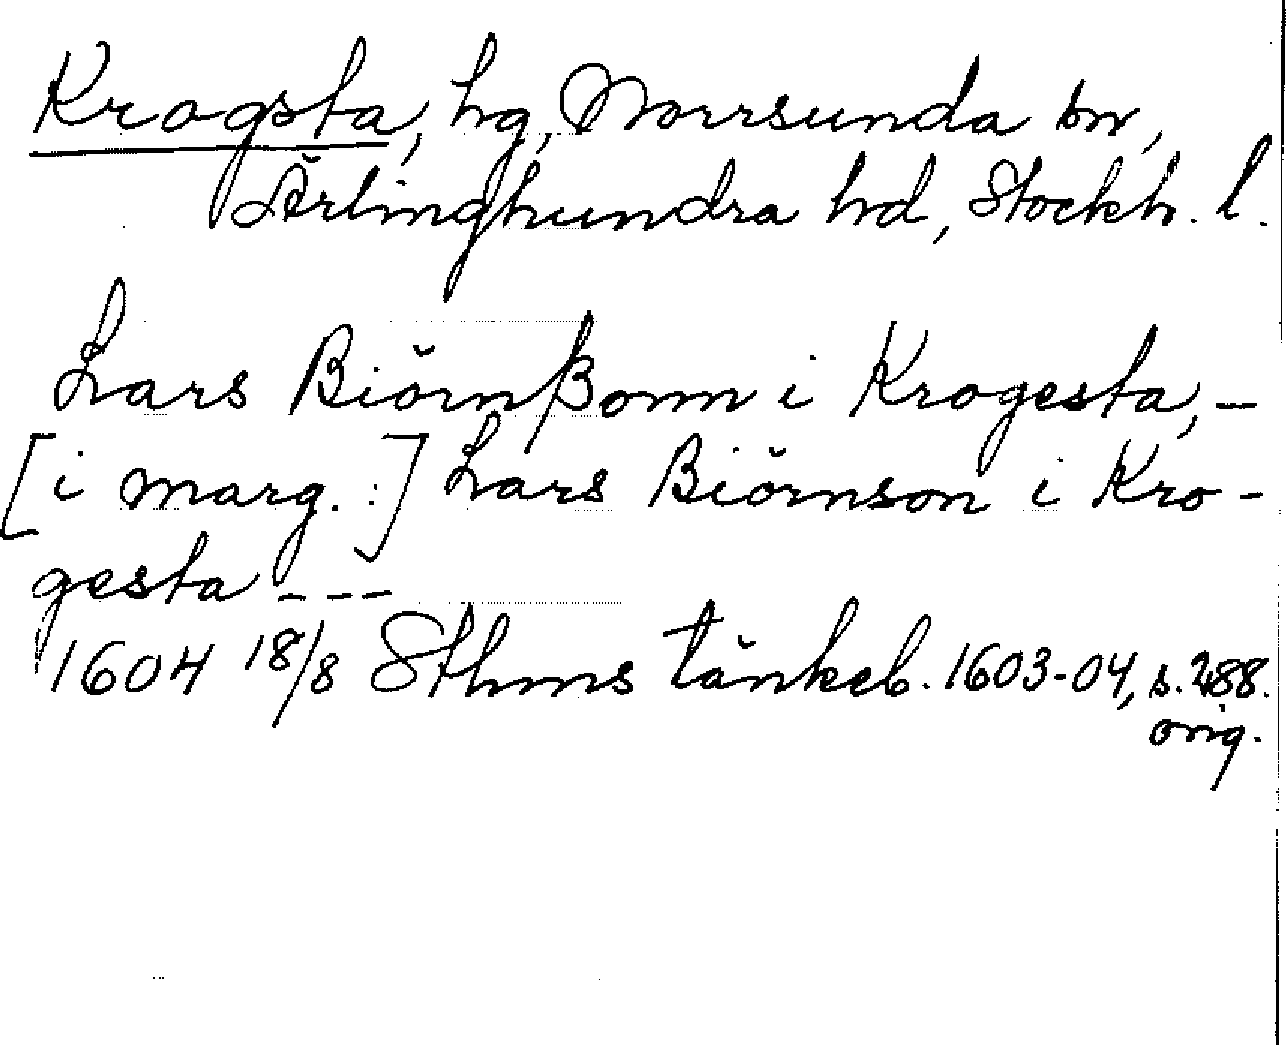 Krogsta, hg, Norrsunda sn,
Ärlinghundra hd, Stockh. l.
Lars Biörnßonn i Krogesta, –
[i marg.:] Lars Biörnson i Kro-
gesta - - -
1604 18/8 Sthms tänkeb. 1603-04, s. 288.
orig.